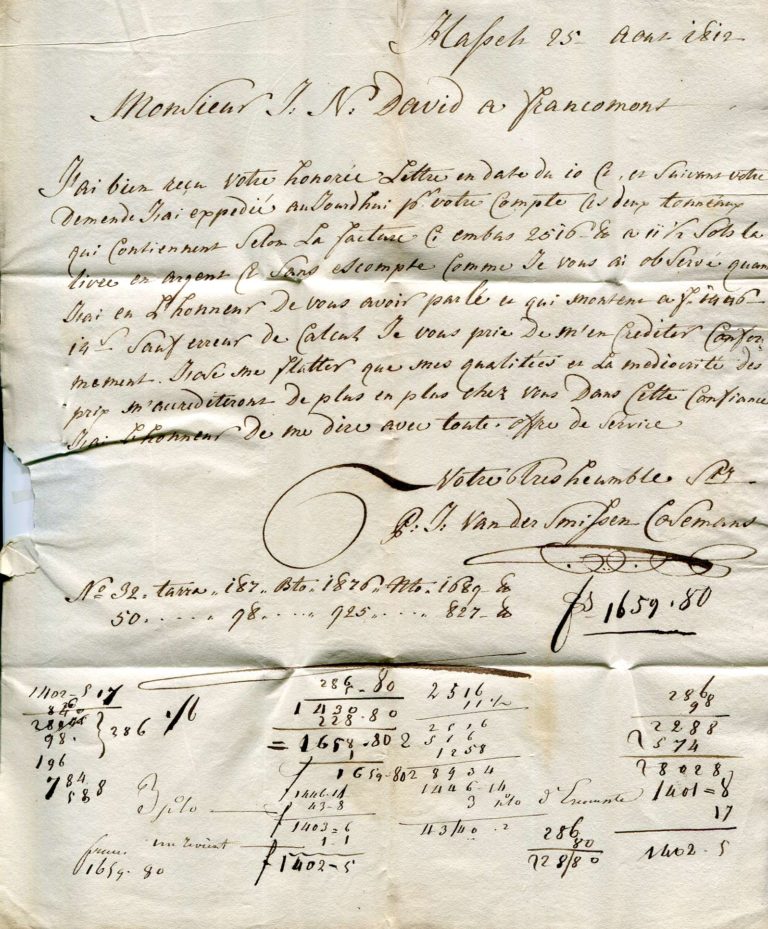 Hasselt 25 Aout 1812
Monsieur J. N. David a francomont
J'ai bien reçu votre honorée Lettre en date du 10 Ct, et suivant votre
Demende J'ai expedié auJourdhui pr votre Compte Ces deux tonneaux
qui Contiennent Selon La facture Ci embas 2516 lb a 11 1/2 Sols La
livre en argent Ct Sans escompte Comme Je vous ai observé quan
J'ai eu L'honneur de vous avoir parlé et qui montent a f. 1446-
14 S. Sauf erreur de Calcul, Je vous prie de m'en Crediter Confor
mement. J'ose me flatter que mes qualitées et La mediocrité des
prix m'accrediteront de plus en plus chez vous Dans Cette Confiance
J'ai L'honneur De me dire avec toute offre de Service
Votre Tres heumble
P. J. Van der Smissen Cosemans
No 32. tarra " 187 " Bto " 1876 " Nto " 1689 lb
50 . . . . . " 98 . . . . " 925 " . . . . " 827 lb
fs 1659.80
1402-5 17
286
98.
196
784
588
286-80
5
1430
228.80
= 1658.80
1
1659-80
1446-14
43-8
1403=6
1-1
f 1402-5
2516
11 1/2
2516
2516
1258
28934
1446-14
3 pCto d'Escompte
4340.2
286
80
228/80
286
98
2288
2574
28028
1401=8
17
1402-5
3 pCto
francs
1659.80